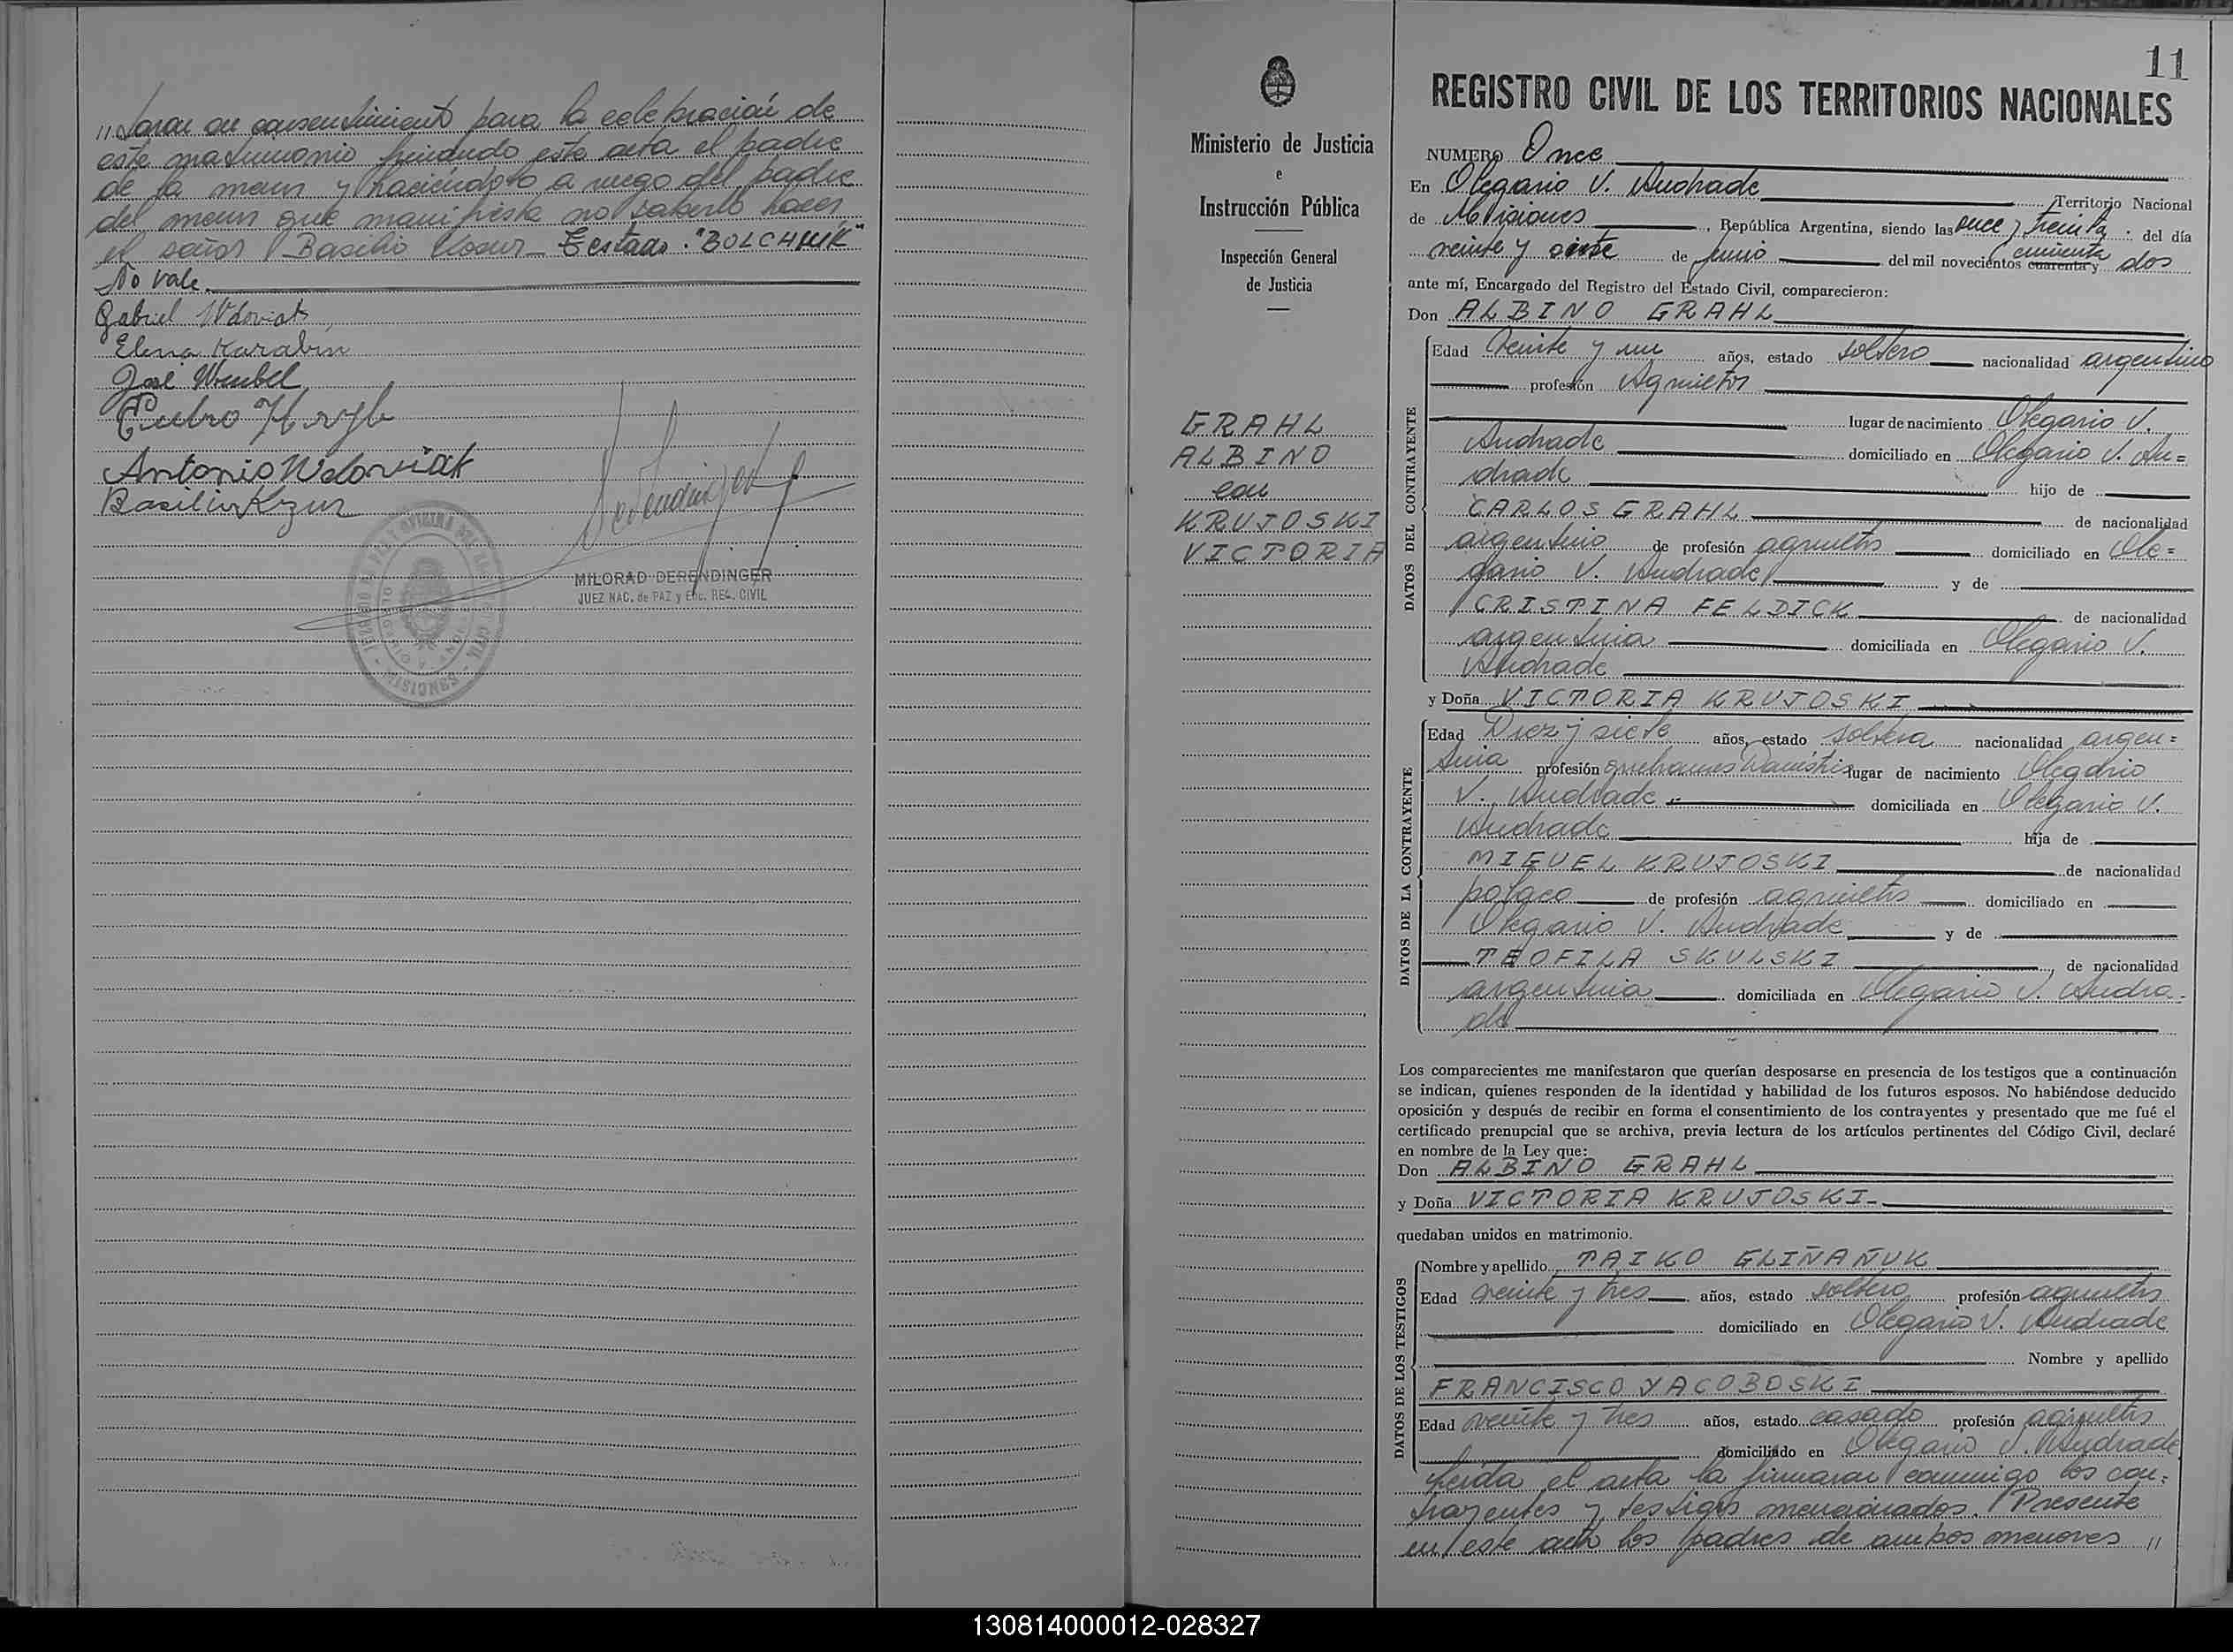 "saron su consentimiento para la celebración de
este matrimonio firmando esta acta el padre
de la menor y haciéndolo a ruego del padre
del menor que manifiesta no saberlo hacer
el señor Basilio Kosur - Testado: "BOLCHNIK"
No vale.
Gabriel Wdoviak
Elena Karabin
José Wrubel
Pedro
Antonio Wdowiak
Basilio Kozur
MILORAD DERENDINGER
JUEZ NAC. de PAZ y Enc. REG. CIVIL
Ministerio de Justicia
e
Instrucción Pública
Inspección General
de Justicia
GRAHL
ALBINO
con
KRUJOSKI
VICTORIA
11
REGISTRO CIVIL DE LOS TERRITORIOS NACIONALES
NUMERO Once
En Olegario V. Andrade Territorio Nacional
de Misiones, República Argentina, siendo las once y treinta del día
veinte y siete de junio del mil novecientos cuarenta y cincuenta dos
ante mí, Encargado del Registro del Estado Civil, comparecieron:
Don ALBINO GRAHL
DATOS DEL CONTRAYENTE
Edad veinte y un años, estado soltero nacionalidad argentino
profesión Agricultor
lugar de nacimiento Olegario V.
Andrade domiciliado en Olegario V. An=
drade hijo de
CARLOS GRAHL de nacionalidad
argentino de profesión agricultor domiciliado en Ole=
gario V. Andrade y de
CRISTINA FELDICK de nacionalidad
argentina domiciliada en Olegario V.
Andrade
y Doña VICTORIA KRUJOSKI
DATOS DE LA CONTRAYENTE
Edad Diez y siete años, estado soltera nacionalidad argen=
tina profesión quehaceres Domésticos lugar de nacimiento Olegario
V. Andrade domiciliada en Olegario V.
Andrade hija de
MIGUEL KRUJOSKI de nacionalidad
polaco de profesión agricultor domiciliado en
Olegario V. Andrade y de
TEOFILA SKULSKI, de nacionalidad
argentina domiciliada en Olegario V. Andra=
de
Los comparecientes me manifestaron que querían desposarse en presencia de los testigos que a continuación
se indican, quienes responden de la identidad y habilidad de los futuros esposos. No habiéndose deducido
oposición y después de recibir en forma el consentimiento de los contrayentes y presentado que me fué el
certificado prenupcial que se archiva, previa lectura de los artículos pertinentes del Código Civil, declaré
en nombre de la Ley que:
Don ALBINO GRAHL
y Doña VICTORIA KRUJOSKI
quedaban unidos en matrimonio.
DATOS DE LOS TESTIGOS
Nombre y apellido TAIKO GLIÑAÑUK
Edad veinte y tres años, estado soltero profesión agricultor
domiciliado en Olegario V. Andrade
Nombre y apellido
FRANCISCO YACOBOSKI
Edad veinte y tres años, estado casado profesión agricultor
domiciliado en Olegario V. Andrade
Leída el acta la firmaron conmigo los con=
trayentes y testigos mencionados. Presente
en este acto los padres de ambos menores "
130814000012-028327